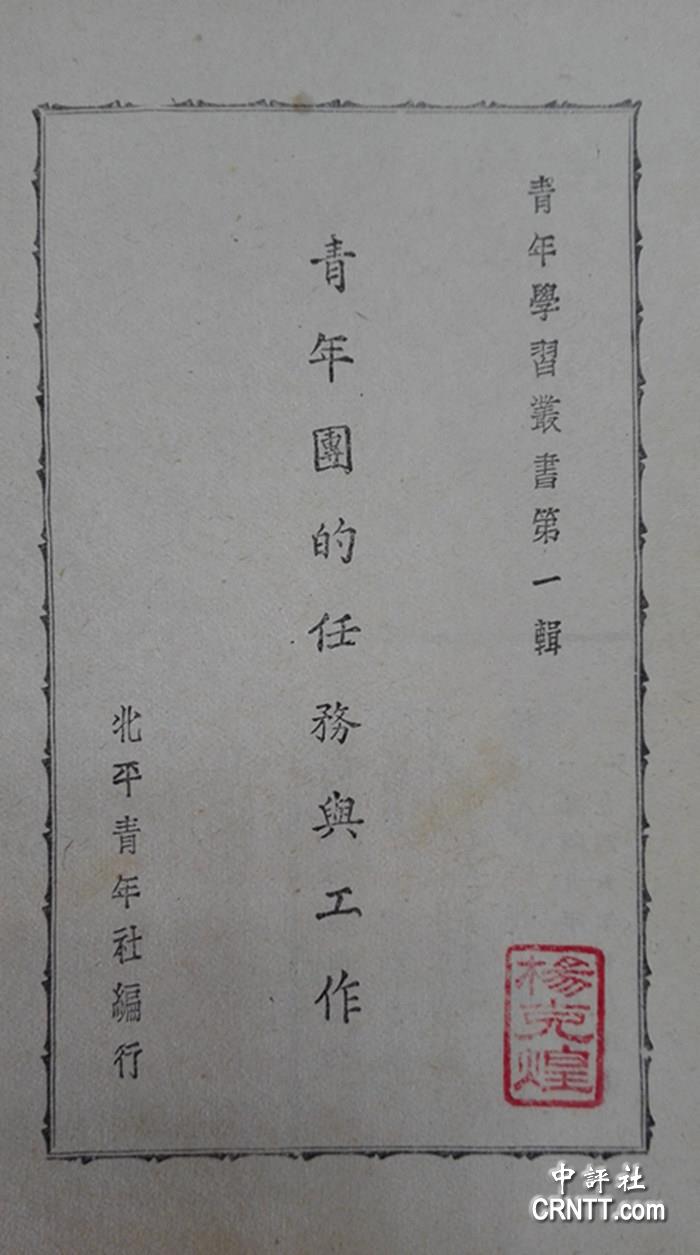 青年學習叢書第一輯
青年團的任務與工作
北平青年社編行
楊克煌
中評社
CRNTT.com